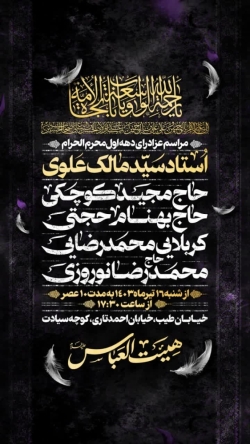 یا رحمة الله الواسعة و یا باب نجاة الامة
مراسم عزاداری دهه اول محرم الحرام
استاد سید مالک علوی
حاج مجید کوچکی
حاج بهنام لاحجتی
کربلایی محمدرضایی
حاج محمدرضا نوروزی
از شنبه ۱۶ تیر ماه ۱۴۰۳ به مدت ۱۰ عصر
از ساعت ۱۷:۳۰
خیابان طیب، خیابان احمد تاری، کوچه سیادت
هیئت العباس